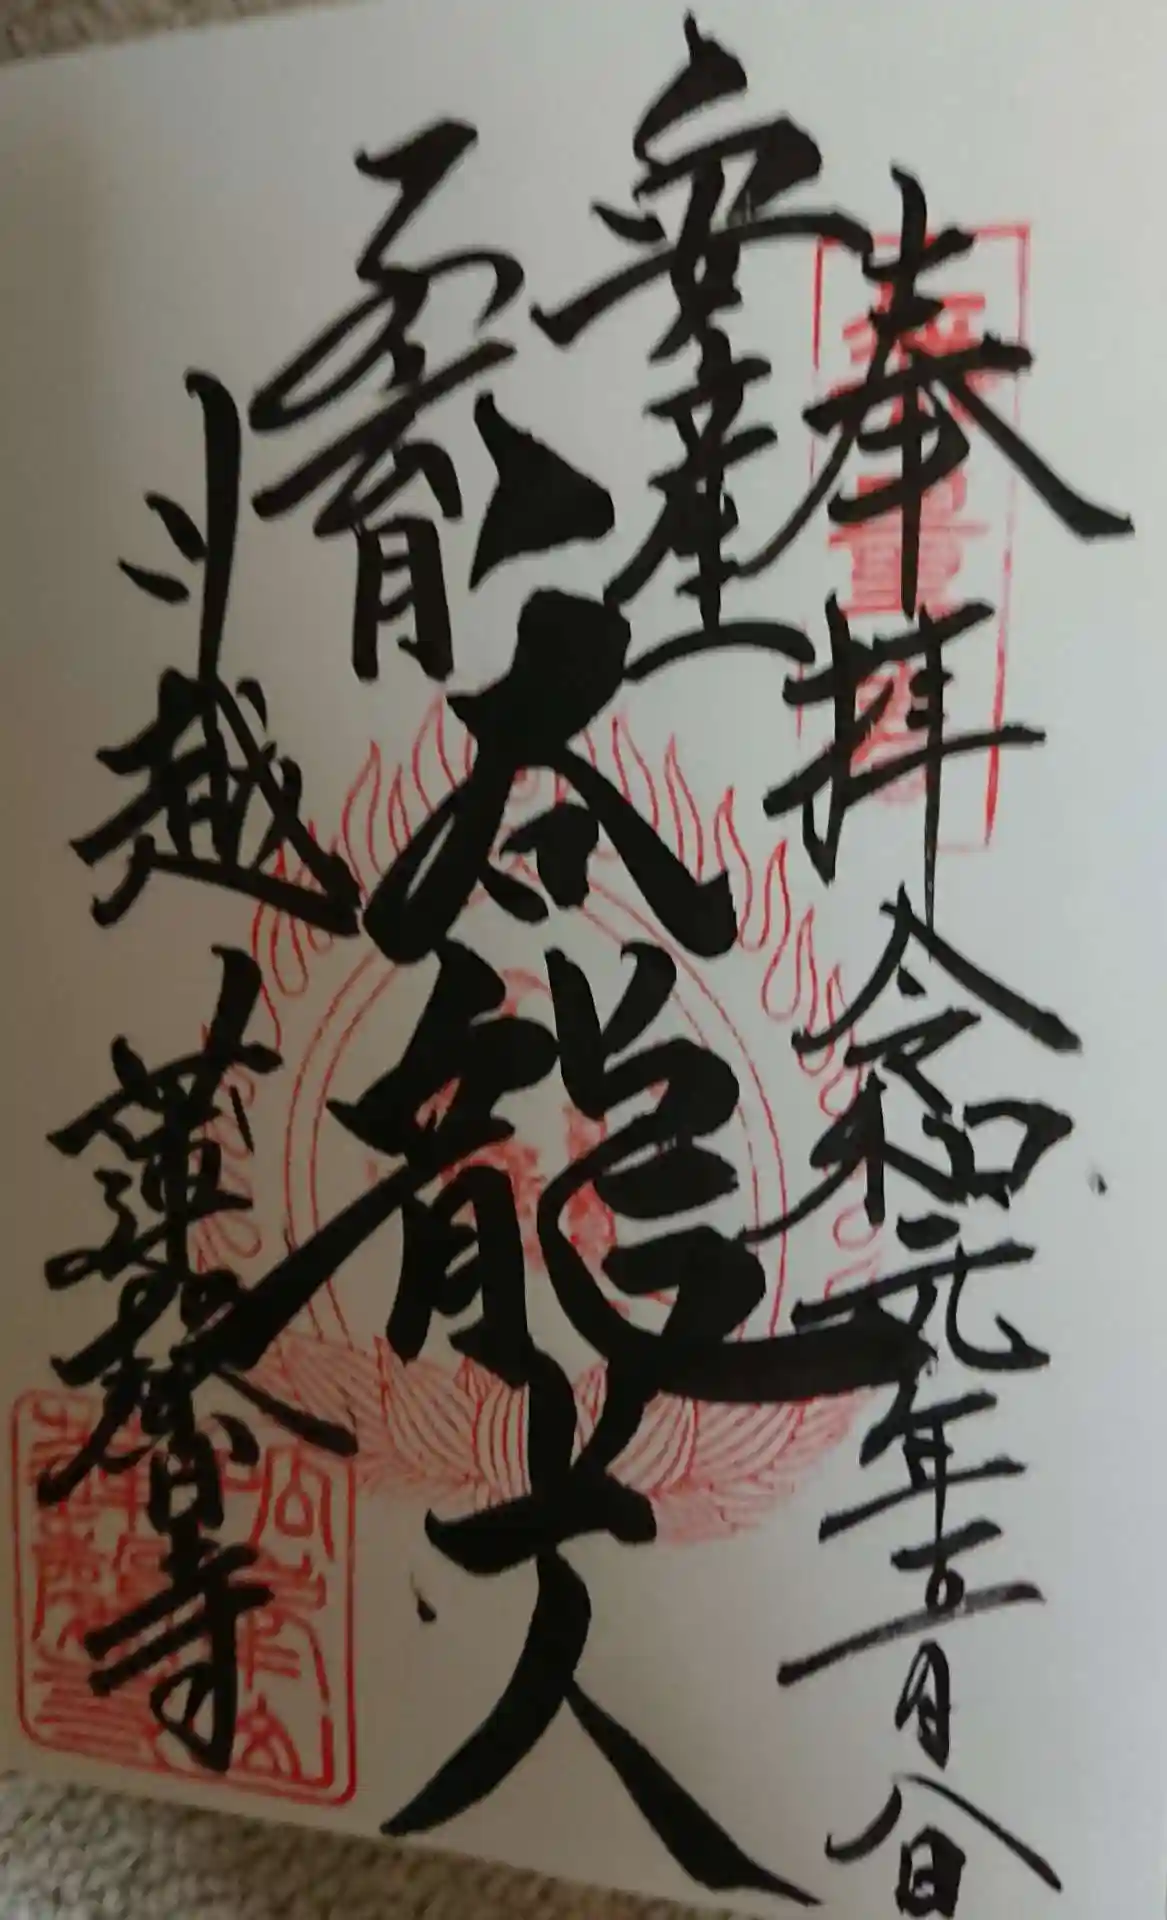 奉拝 令和元年五月八日
安産
子育
呑龍上人
川越 蓮馨寺